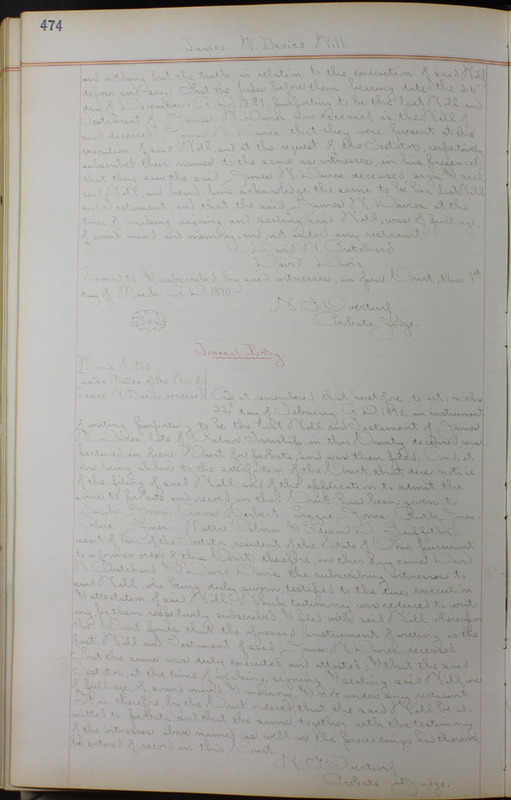 474
James W. Davies Will
and nothing but the truth, in relation to the execution of said Will
depose and say: That the paper before them bearing date the 26"
day of December A.D. 1889, purporting to be the last Will and
Testament of James W. Davies now deceased is the Will of
said deceased James W. Davies, that they were present at the
execution of said Will, and at the request of the Testator, respectively
subscribed their names to the same as witnesses, in his presence;
that they saw the said James W. Davies deceased sign & seal
said Will, and heard him acknowledge the same to be his last Will
and Testament, and that the said James W. Davies at the
time of making, signing and sealing said Will, was of full age
of sound mind and memory and not under any restraint
David N. Pritchard
David Davis
Sworn to & subscribed by said witnesses, in open Court, this 1st
day of March A.D. 1890.
Probate Judge.
Journal Entry
March 1st 1890
In the Matter of the Will of
James W. Davies, deceased
Be it remembered that heretofore, to-wit: on the
22d day of February, A.D. 1890, an instrument
of writing, purporting to be the last Will and Testament of James
W. Davies late of Township, in this County, deceased, was
produced in open Court for probate, and was then filed. And, it
now being shown to the satisfaction of the Court, that due notice
of the filing of said Will and of the application to admit the
same to probate and record in this Court has been given to
Jones, Anna Lizzie Jones, Ruth Jones
Alice Jones, Mattie & Edward
of the Testator, resident of the State of Ohio pursuant
to a former order of this Court; therefore, on this day came David
N. Pritchard & David Davis the subscribing witnesses to
said Will, who being duly sworn, testified to the due execution
& attestation of said Will; Which testimony was reduced to writ-
ing by them respectively subscribed & filed with said Will whereupon
the Court finds that the aforesaid instrument of writing is the
last Will and Testament of said James W. Davies, deceased
That the same was duly executed and attested & that the said
Testator, at the time of making, signing & sealing said Will, was
of full age, of sound mind & memory & not under any restraint
It is therefore by the Court ordered, that the said Will be ad-
mitted to probate, and that the same, together with the testimony
of the witnesses above named, as well as the proceedings had therein,
be entered of record in this Court
Probate Judge.